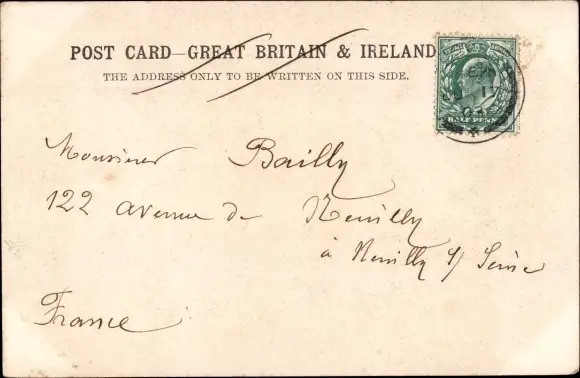 POST CARD—GREAT BRITAIN & IRELAND
THE ADDRESS ONLY TO BE WRITTEN ON THIS SIDE.
HALF PENNY
Monsieur Bailly
122 avenue de Neuilly
à Neuilly s/ Seine
France